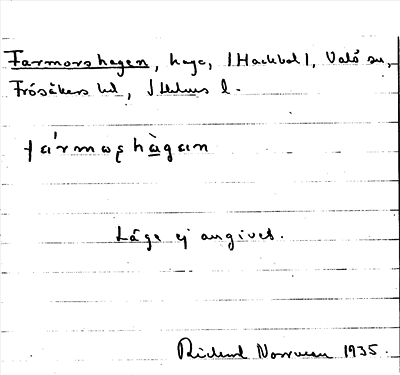 Farmorshagen, hage, (Hackbol), Valö sn,
Frösåkers hd, Sthlms l.
fármoṣhàgan
Läge ej angives.
Rickard Norrman 1935.